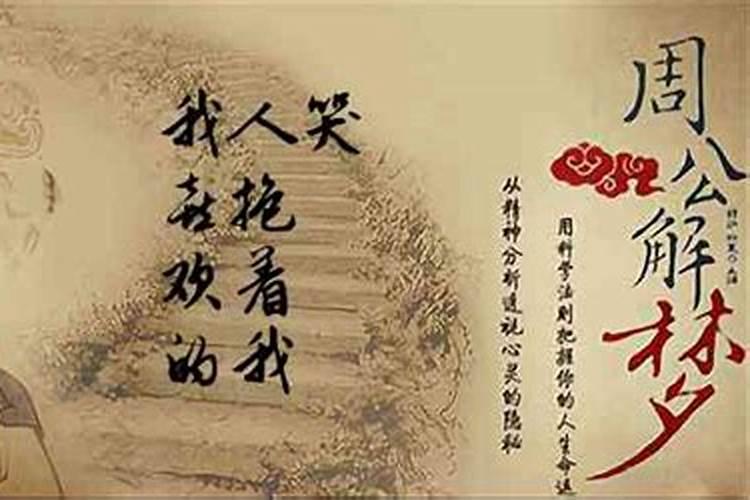 周公解梦
用科学法则把握你的人生命运
从精神分析透视心灵的隐秘
我喜欢的
人抱着我
哭